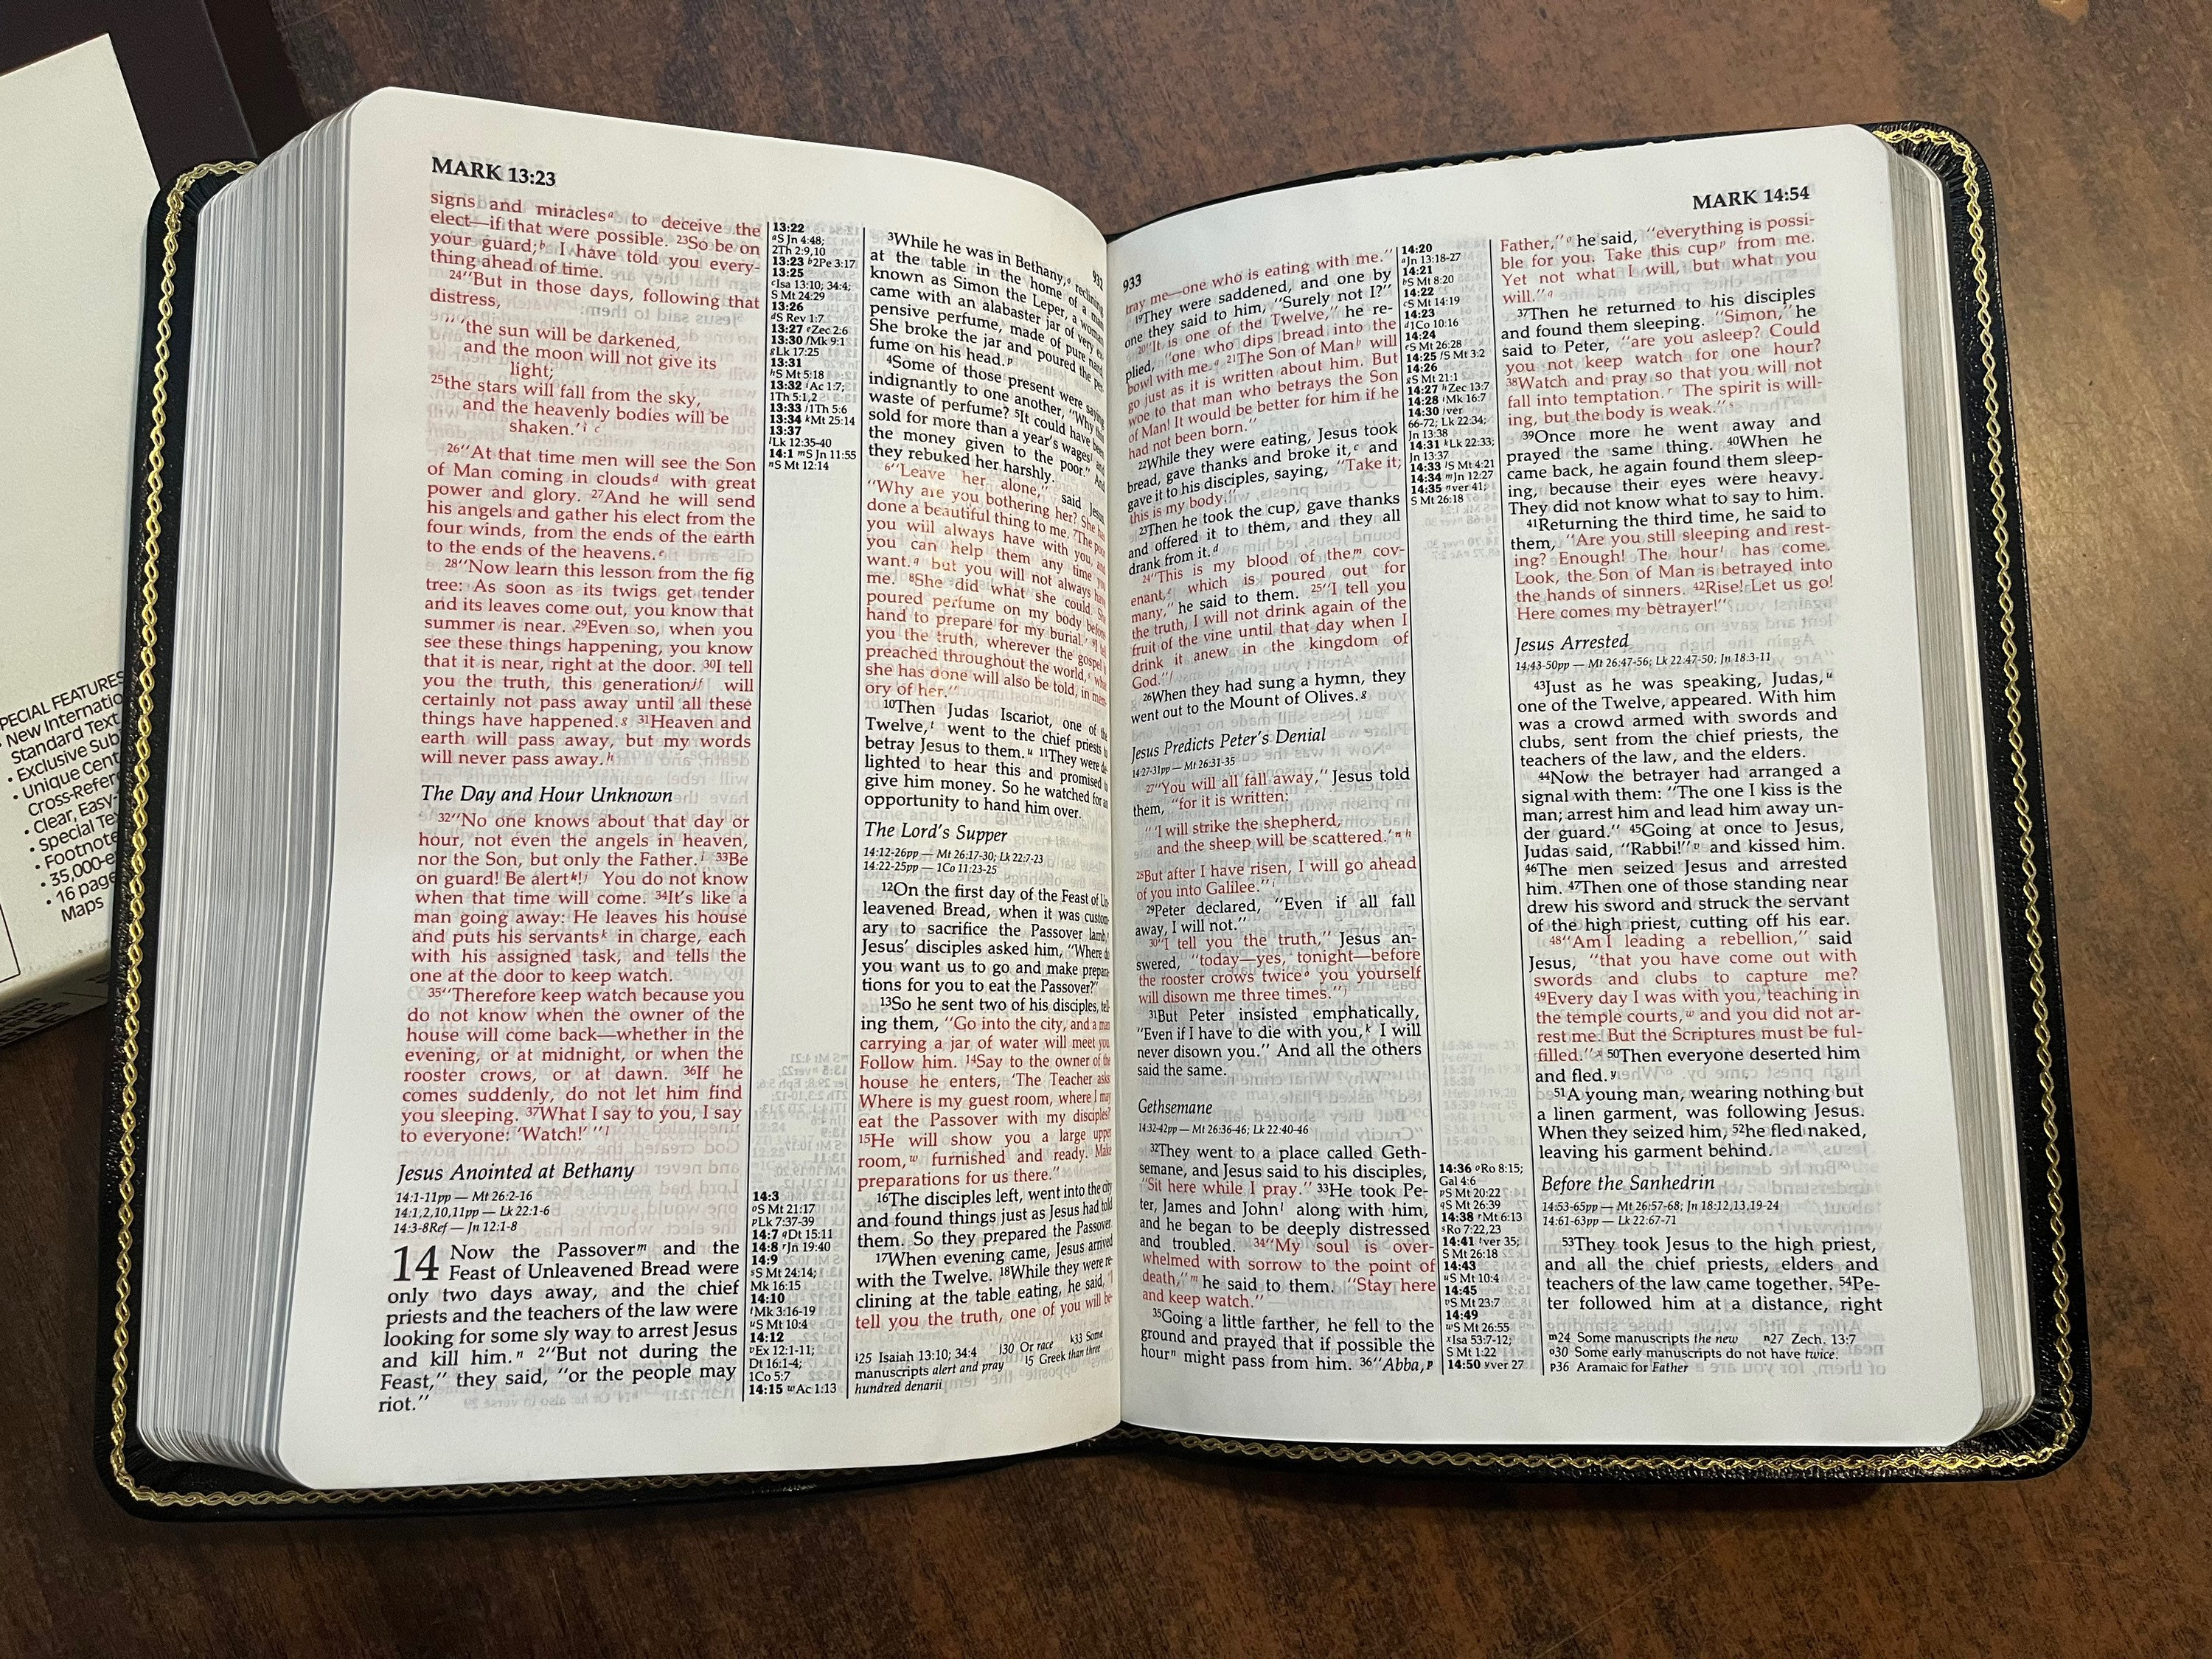 PECIAL FEATURES
New Internatio
Standard Text
• Exclusive Sub
• Unique Cent
Cross-Refer
• Clear, Easy-
• Special Te
• Footnote
• 35,000-e
• 16 page
Maps
MARK 13:23
932
signs and miraclesᵃ to deceive the
elect—if that were possible. ²³So be on
your guard;ᵇ I have told you every-
thing ahead of time.
²⁴“But in those days, following that
distress,
“ ‘the sun will be darkened,
and the moon will not give its
light;
²⁵the stars will fall from the sky,
and the heavenly bodies will be
shaken.’ⁱ ᶜ
²⁶“At that time men will see the Son
of Man coming in cloudsᵈ with great
power and glory. ²⁷And he will send
his angels and gather his elect from the
four winds, from the ends of the earth
to the ends of the heavens.ᵉ
²⁸“Now learn this lesson from the fig
tree: As soon as its twigs get tender
and its leaves come out, you know that
summer is near. ²⁹Even so, when you
see these things happening, you know
that it is near, right at the door. ³⁰I tell
you the truth, this generationʲᶠ will
certainly not pass away until all these
things have happened.ᵍ ³¹Heaven and
earth will pass away, but my words
will never pass away.ʰ
The Day and Hour Unknown
³²“No one knows about that day or
hour, not even the angels in heaven,
nor the Son, but only the Father.ⁱ ³³Be
on guard! Be alertᵏ!ʲ You do not know
when that time will come. ³⁴It’s like a
man going away: He leaves his house
and puts his servantsᵏ in charge, each
with his assigned task, and tells the
one at the door to keep watch.
³⁵“Therefore keep watch because you
do not know when the owner of the
house will come back—whether in the
evening, or at midnight, or when the
rooster crows, or at dawn. ³⁶If he
comes suddenly, do not let him find
you sleeping. ³⁷What I say to you, I say
to everyone: ‘Watch!’ ”ˡ
Jesus Anointed at Bethany
14:1-11pp — Mt 26:2-16
14:1,2,10,11pp — Lk 22:1-6
14:3-8Ref — Jn 12:1-8
14 Now the Passoverᵐ and the
Feast of Unleavened Bread were
only two days away, and the chief
priests and the teachers of the law were
looking for some sly way to arrest Jesus
and kill him.ⁿ ²“But not during the
Feast,” they said, “or the people may
riot.”
13:22
ᵃS Jn 4:48;
2Th 2:9,10
13:23 ᵇ2Pe 3:17
13:25
ᶜIsa 13:10; 34:4;
S Mt 24:29
13:26
ᵈS Rev 1:7
13:27 ᵉZec 2:6
13:30 ᶠMk 9:1
ᵍLk 17:25
13:31
ʰS Mt 5:18
13:32 ⁱAc 1:7;
1Th 5:1,2
13:33 ʲ1Th 5:6
13:34 ᵏMt 25:14
13:37
ˡLk 12:35-40
14:1 ᵐS Jn 11:55
ⁿS Mt 12:14
14:3
ᵒS Mt 21:17
ᵖLk 7:37-39
14:7 qDt 15:11
14:8 ʳJn 19:40
14:9
ˢS Mt 24:14;
Mk 16:15
14:10
ᵗMk 3:16-19
ᵘS Mt 10:4
14:12
ᵛEx 12:1-11;
Dt 16:1-4;
1Co 5:7
14:15 ʷAc 1:13
³While he was in Bethany,ᵒ reclining
at the table in the home of a man
known as Simon the Leper, a woman
came with an alabaster jar of very ex-
pensive perfume, made of pure nard.
She broke the jar and poured the per-
fume on his head.ᵖ
⁴Some of those present were saying
indignantly to one another, “Why this
waste of perfume? ⁵It could have been
sold for more than a year’s wagesˡ and
the money given to the poor.” And
they rebuked her harshly.
⁶“Leave her alone,” said Jesus.
“Why are you bothering her? She has
done a beautiful thing to me. ⁷The poor
you will always have with you, and
you can help them any time you
want.q but you will not always have
me. ⁸She did what she could. She
poured perfume on my body before-
hand to prepare for my burial.ʳ ⁹I tell
you the truth, wherever the gospel is
preached throughout the world,ˢ what
she has done will also be told, in mem-
ory of her.”
¹⁰Then Judas Iscariot, one of the
Twelve,ᵗ went to the chief priests to
betray Jesus to them.ᵘ ¹¹They were de-
lighted to hear this and promised to
give him money. So he watched for an
opportunity to hand him over.
The Lord’s Supper
14:12-26pp — Mt 26:17-30; Lk 22:7-23
14:22-25pp — 1Co 11:23-25
¹²On the first day of the Feast of Un-
leavened Bread, when it was custom-
ary to sacrifice the Passover lamb,ᵛ
Jesus’ disciples asked him, “Where do
you want us to go and make prepara-
tions for you to eat the Passover?”
¹³So he sent two of his disciples, tell-
ing them, “Go into the city, and a man
carrying a jar of water will meet you.
Follow him. ¹⁴Say to the owner of the
house he enters, ‘The Teacher asks:
Where is my guest room, where I may
eat the Passover with my disciples?’
¹⁵He will show you a large upper
room,ʷ furnished and ready. Make
preparations for us there.”
¹⁶The disciples left, went into the city
and found things just as Jesus had told
them. So they prepared the Passover.
¹⁷When evening came, Jesus arrived
with the Twelve. ¹⁸While they were re-
clining at the table eating, he said, “I
tell you the truth, one of you will be-
ⁱ25 Isaiah 13:10; 34:4 ʲ30 Or race ᵏ33 Some
manuscripts alert and pray ˡ5 Greek than three
hundred denarii
933
MARK 14:54
tray me—one who is eating with me.”
¹⁹They were saddened, and one by
one they said to him, “Surely not I?”
²⁰“It is one of the Twelve,” he re-
plied, “one who dips bread into the
bowl with me.ᵃ ²¹The Son of Manᵇ will
go just as it is written about him. But
woe to that man who betrays the Son
of Man! It would be better for him if he
had not been born.”
²²While they were eating, Jesus took
bread, gave thanks and broke it,ᶜ and
gave it to his disciples, saying, “Take it;
this is my body.”
²³Then he took the cup, gave thanks
and offered it to them, and they all
drank from it.ᵈ
²⁴“This is my blood of theᵐ cov-
enant,ᵉ which is poured out for
many,” he said to them. ²⁵“I tell you
the truth, I will not drink again of the
fruit of the vine until that day when I
drink it anew in the kingdom of
God.”ᶠ
²⁶When they had sung a hymn, they
went out to the Mount of Olives.ᵍ
Jesus Predicts Peter’s Denial
14:27-31pp — Mt 26:31-35
²⁷“You will all fall away,” Jesus told
them, “for it is written:
“ ‘I will strike the shepherd,
and the sheep will be scattered.’ⁿ ʰ
²⁸But after I have risen, I will go ahead
of you into Galilee.”ⁱ
²⁹Peter declared, “Even if all fall
away, I will not.”
³⁰“I tell you the truth,” Jesus an-
swered, “today—yes, tonight—before
the rooster crows twiceᵒ you yourself
will disown me three times.”ʲ
³¹But Peter insisted emphatically,
“Even if I have to die with you,ᵏ I will
never disown you.” And all the others
said the same.
Gethsemane
14:32-42pp — Mt 26:36-46; Lk 22:40-46
³²They went to a place called Geth-
semane, and Jesus said to his disciples,
“Sit here while I pray.” ³³He took Pe-
ter, James and Johnˡ along with him,
and he began to be deeply distressed
and troubled. ³⁴“My soul is over-
whelmed with sorrow to the point of
death,”ᵐ he said to them. “Stay here
and keep watch.”
³⁵Going a little farther, he fell to the
ground and prayed that if possible the
hourⁿ might pass from him. ³⁶“Abba,ᵖ
14:20
ᵃJn 13:18-27
14:21
ᵇS Mt 8:20
14:22
ᶜS Mt 14:19
14:23
ᵈ1Co 10:16
14:24
ᵉS Mt 26:28
14:25 ᶠS Mt 3:2
14:26
ᵍS Mt 21:1
14:27 ʰZec 13:7
14:28 ⁱMk 16:7
14:30 ʲver
66-72; Lk 22:34;
Jn 13:38
14:31 ᵏLk 22:33;
Jn 13:37
14:33 ˡS Mt 4:21
14:34 ᵐJn 12:27
14:35 ⁿver 41;
S Mt 26:18
14:36 ᵒRo 8:15;
Gal 4:6
ᵖS Mt 20:22
qS Mt 26:39
14:38 ʳMt 6:13
ˢRo 7:22,23
14:41 ᵗver 35;
S Mt 26:18
14:43
ᵘS Mt 10:4
14:45
ᵛS Mt 23:7
14:49
ʷS Mt 26:55
ˣIsa 53:7-12;
S Mt 1:22
14:50 ʸver 27
Father,”ᵒ he said, “everything is possi-
ble for you. Take this cupᵖ from me.
Yet not what I will, but what you
will.”q
³⁷Then he returned to his disciples
and found them sleeping. “Simon,” he
said to Peter, “are you asleep? Could
you not keep watch for one hour?
³⁸Watch and pray so that you will not
fall into temptation.ʳ The spirit is will-
ing, but the body is weak.”ˢ
³⁹Once more he went away and
prayed the same thing. ⁴⁰When he
came back, he again found them sleep-
ing, because their eyes were heavy.
They did not know what to say to him.
⁴¹Returning the third time, he said to
them, “Are you still sleeping and rest-
ing? Enough! The hourᵗ has come.
Look, the Son of Man is betrayed into
the hands of sinners. ⁴²Rise! Let us go!
Here comes my betrayer!”
Jesus Arrested
14:43-50pp — Mt 26:47-56; Lk 22:47-50; Jn 18:3-11
⁴³Just as he was speaking, Judas,ᵘ
one of the Twelve, appeared. With him
was a crowd armed with swords and
clubs, sent from the chief priests, the
teachers of the law, and the elders.
⁴⁴Now the betrayer had arranged a
signal with them: “The one I kiss is the
man; arrest him and lead him away un-
der guard.” ⁴⁵Going at once to Jesus,
Judas said, “Rabbi!”ᵛ and kissed him.
⁴⁶The men seized Jesus and arrested
him. ⁴⁷Then one of those standing near
drew his sword and struck the servant
of the high priest, cutting off his ear.
⁴⁸“Am I leading a rebellion,” said
Jesus, “that you have come out with
swords and clubs to capture me?
⁴⁹Every day I was with you, teaching in
the temple courts,ʷ and you did not ar-
rest me. But the Scriptures must be ful-
filled.”ˣ ⁵⁰Then everyone deserted him
and fled.ʸ
⁵¹A young man, wearing nothing but
a linen garment, was following Jesus.
When they seized him, ⁵²he fled naked,
leaving his garment behind.
Before the Sanhedrin
14:53-65pp — Mt 26:57-68; Jn 18:12,13,19-24
14:61-63pp — Lk 22:67-71
⁵³They took Jesus to the high priest,
and all the chief priests, elders and
teachers of the law came together. ⁵⁴Pe-
ter followed him at a distance, right
ᵐ24 Some manuscripts the new ⁿ27 Zech. 13:7
ᵒ30 Some early manuscripts do not have twice.
ᵖ36 Aramaic for Father